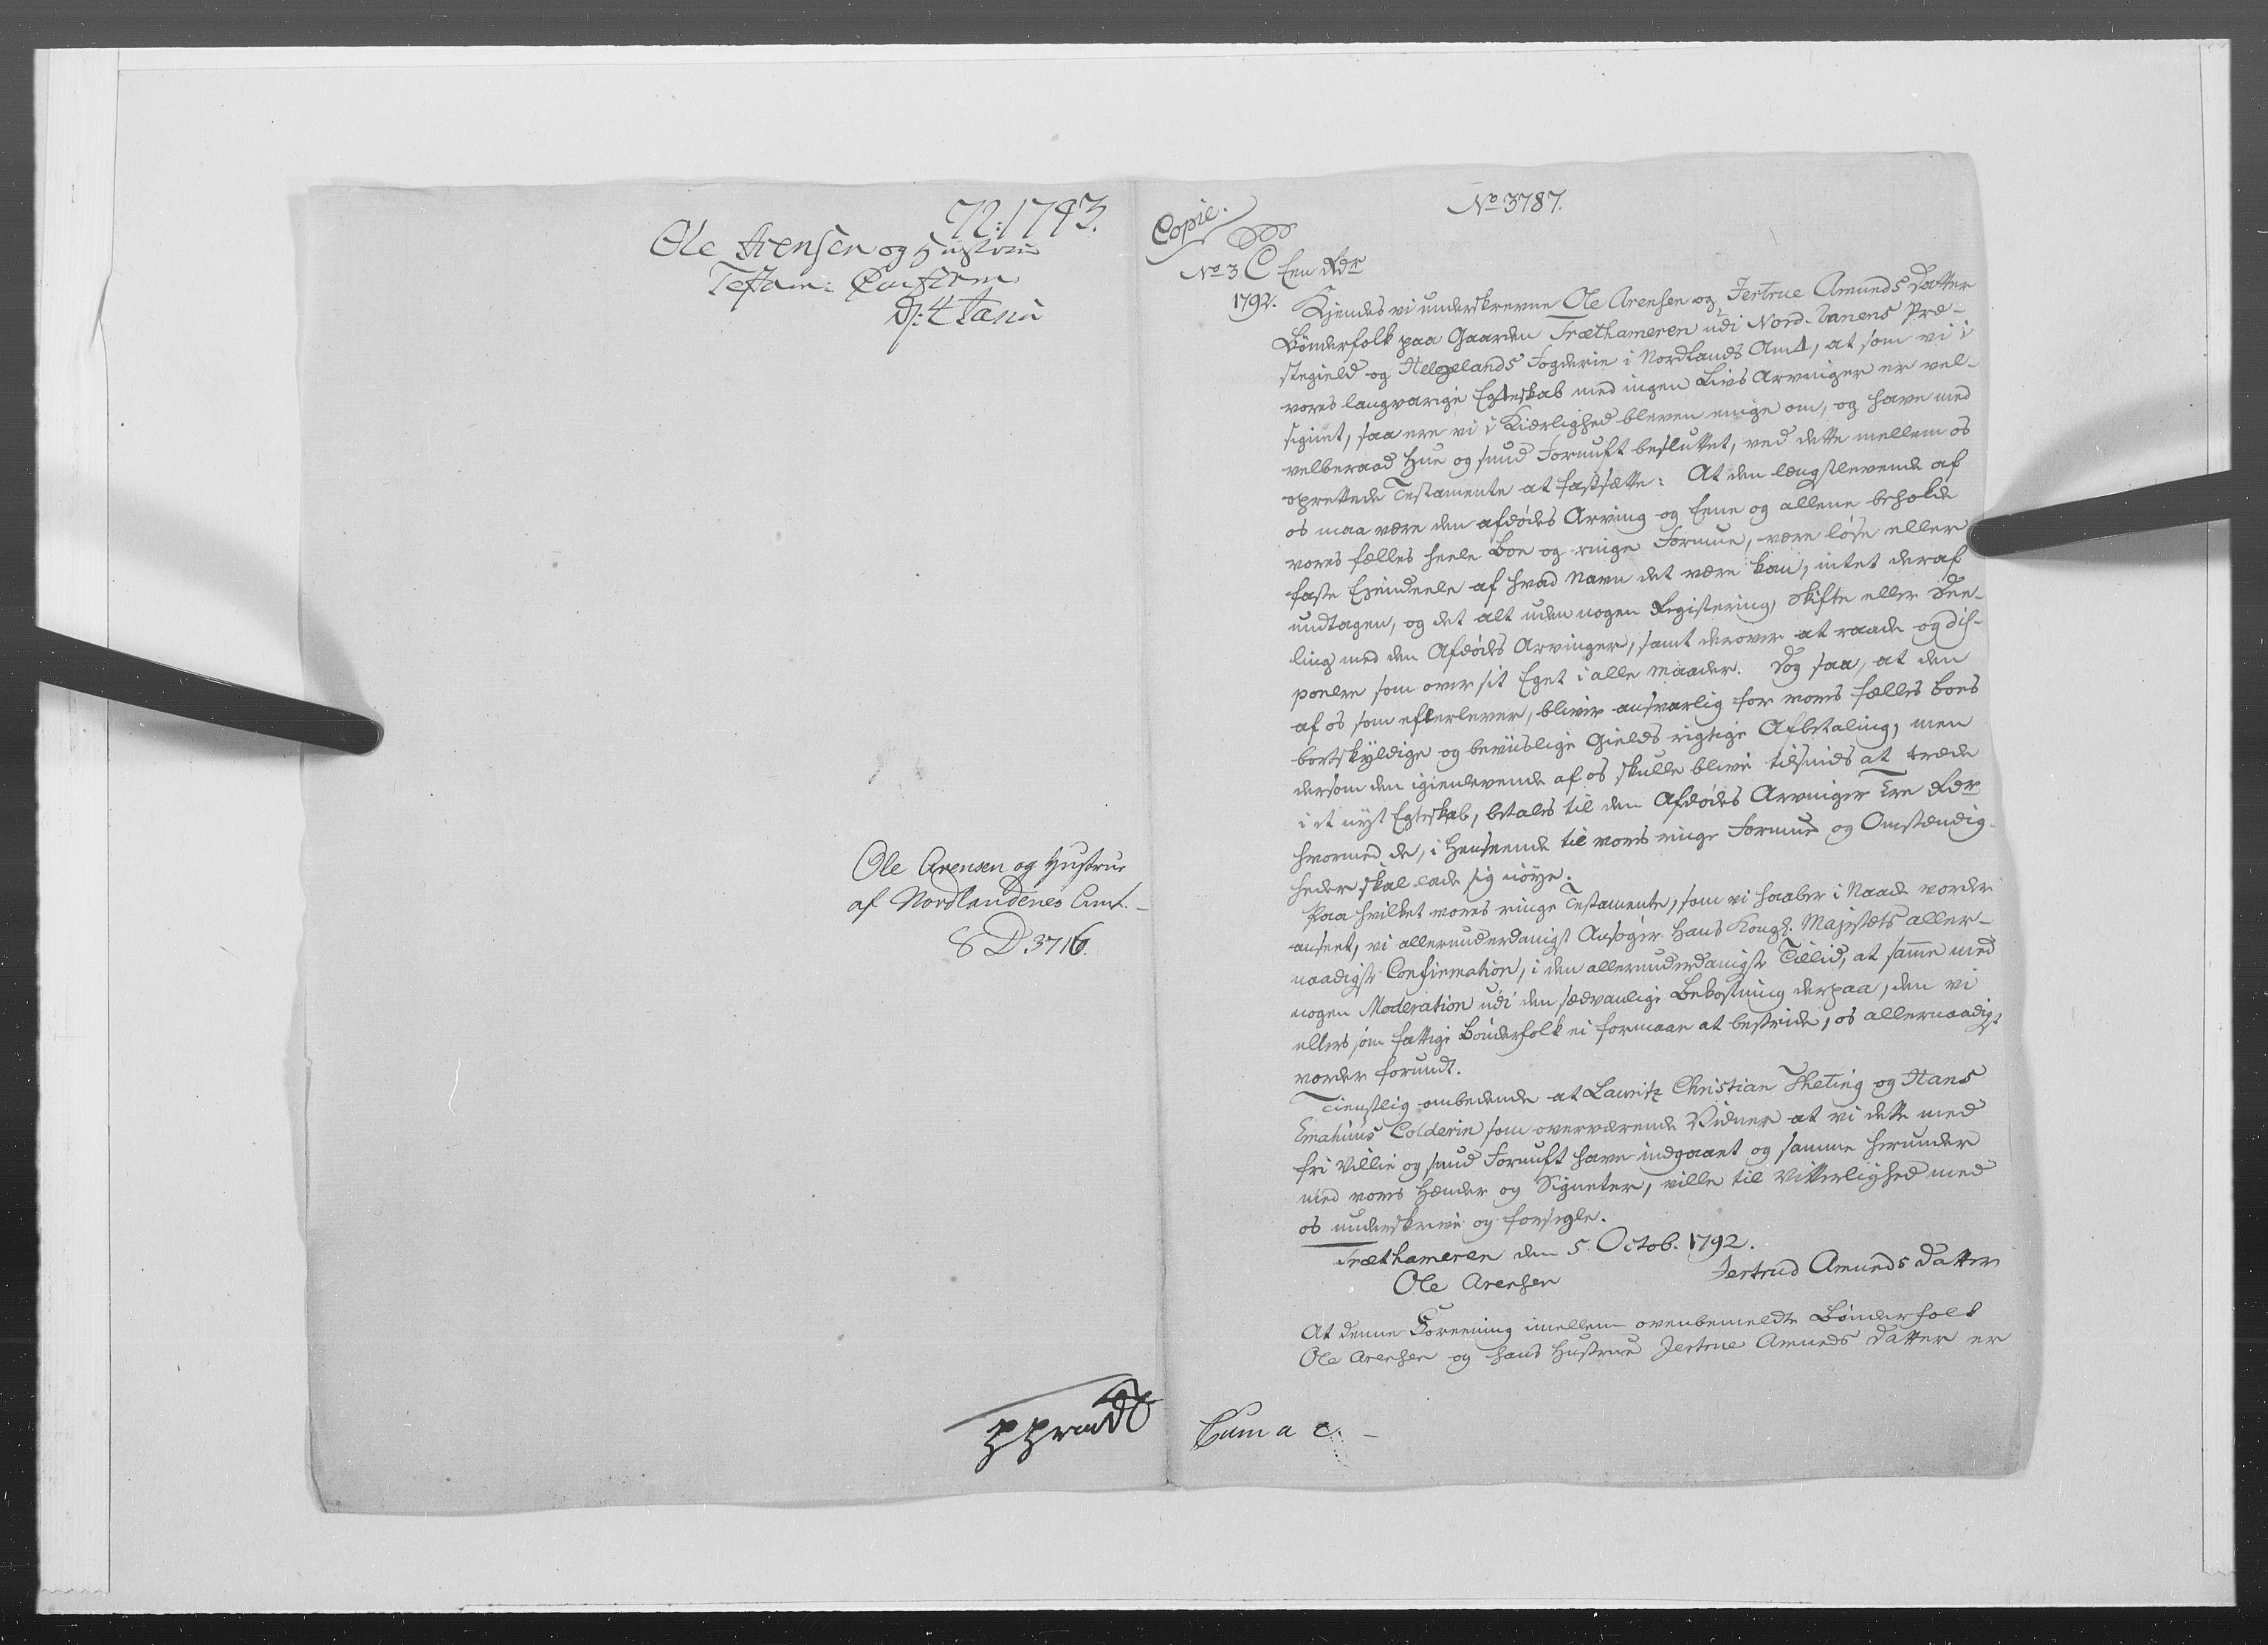 72:1793.
Ole Arensen og Hustrue
Testam: Confirm
D: 4 Janu
Ole Arensen og Hustrue
af Nordlandenes Amt.
8 D. 3716.
No 3787.
Copie.
No 3 C Een Rdr
1792. Kjendes vi underskrevne Ole Arensen og Jertrue Amunds Datter
Bønderfolk paa Gaarden Træthameren udi Nord-Ranens Præ-
stegield og Helgelands Fogderie i Nordlands Amt, at som vi i
vores langvarige Egteskab med ingen Livs Arvinger er vel-
signet, saa ere vi i Kierlighed bleven enige om, og have med
velberaad Hue og sund Fornuft besluttet, ved dette mellem os
oprettede Testamente at fastsætte: At den længstlevende af
os maa være den afdødes Arving og Eene og allene beholde
vores fælles heele Boe og ringe Formue, være løse eller
faste Ejendeele af hvad Navn det være kan, intet deraf
undtagen, og det alt uden nogen Registering, Skifte eller Dee-
ling med den Afdødes Arvinger, samt derover at raade og dis-
ponere som over sit Eget i alle Maader. Dog saa, at den
af os som efterlever, bliver ansvarlig for vores fælles Boes
bortskyldige og beviislige Gields rigtige Afbetaling, men
dersom den igienlevende af os skulle blive tilsinds at træde
i et nyt Egteskab, betales til den Afdødes Arvinger Tre Rdr
hvormed de, i Henseende til vores ringe Formue og Omstændig-
heder skal lade sig nøye.
Paa hvilket vores ringe Testamente, som vi haaber i Naade vorder
anseet, vi allerunderdanigst Ansøger Hans Kongl. Majestets aller-
naadigste Confirmation, i den allerunderdanigste Tillid, at samme med
nogen Moderation udi den sædvanlige Bekostning derpaa, den vi
ellers som fattige Bønderfolk ei formaar at bestride, os allernaadigst
vorder forundt.
Tienstlig ombedende at Lauritz Christian Theting og Hans
Emahuus Colderin som overværende Vidner at vi dette med
fri Villie og sund Fornuft have indgaaet og samme herunder
med vores Hænder og Signeter, ville til Vitterlighed med
os underskrive og forsegle.
Træthameren den 5. Octob. 1792.
Ole Arensen Jertrud Amunds Datter
At denne Foreening imellem ovenbemeldte Bønderfolk
Ole Arensen og hans Hustrue Jertrue Amunds Datter er